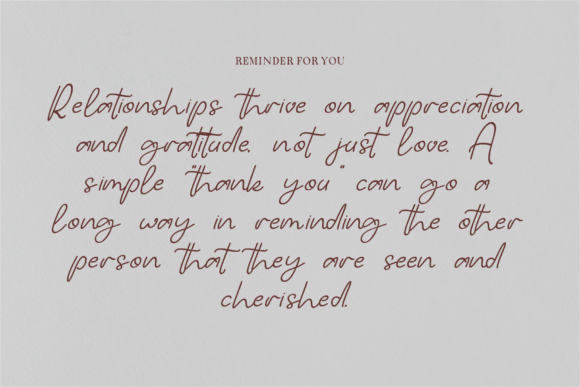 REMINDER FOR YOU
Relationships thrive on appreciation
and gratitude, not just love. A
simple "thank you" can go a
long way in reminding the other
person that they are seen and
cherished.